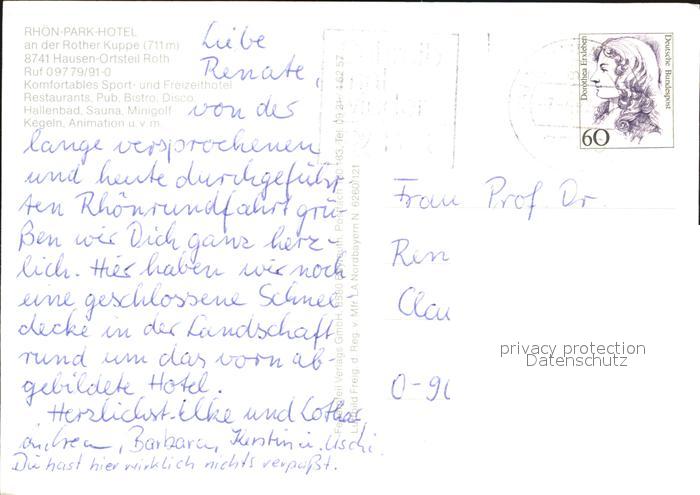 RHÖN-PARK-HOTEL
an der Rother Kuppe (711m)
8741 Hausen-Ortsteil Roth
Ruf 09779/91-0
Komfortables Sport- und Freizeithotel
Restaurants, Pub, Bistro, Disco,
Hallenbad, Sauna, Minigolf
Kegeln, Animation u. v. m.
Liebe
Renate,
von der
lange versprochenen
und heute durchgeführ-
ten Rhönrundfahrt grü-
ßen wir Dich ganz herz-
lich. Hier haben wir noch
eine geschlossene Schnee
decke in der Landschaft
rund um das vorn ab-
gebildete Hotel.
Herzlichst Elke und Lothar
Andrea, Barbara, Kerstin u. Uschi
Du hast hier wirklich nichts verpaßt.
Verlags GmbH
Luftbild Freig. d. Reg. v. Mfr. LA Nordbayern N
Dorothea Erxleben
Deutsche Bundespost
60
Frau Prof. Dr.
Ren
Clau
O-90
privacy protection
Datenschutz